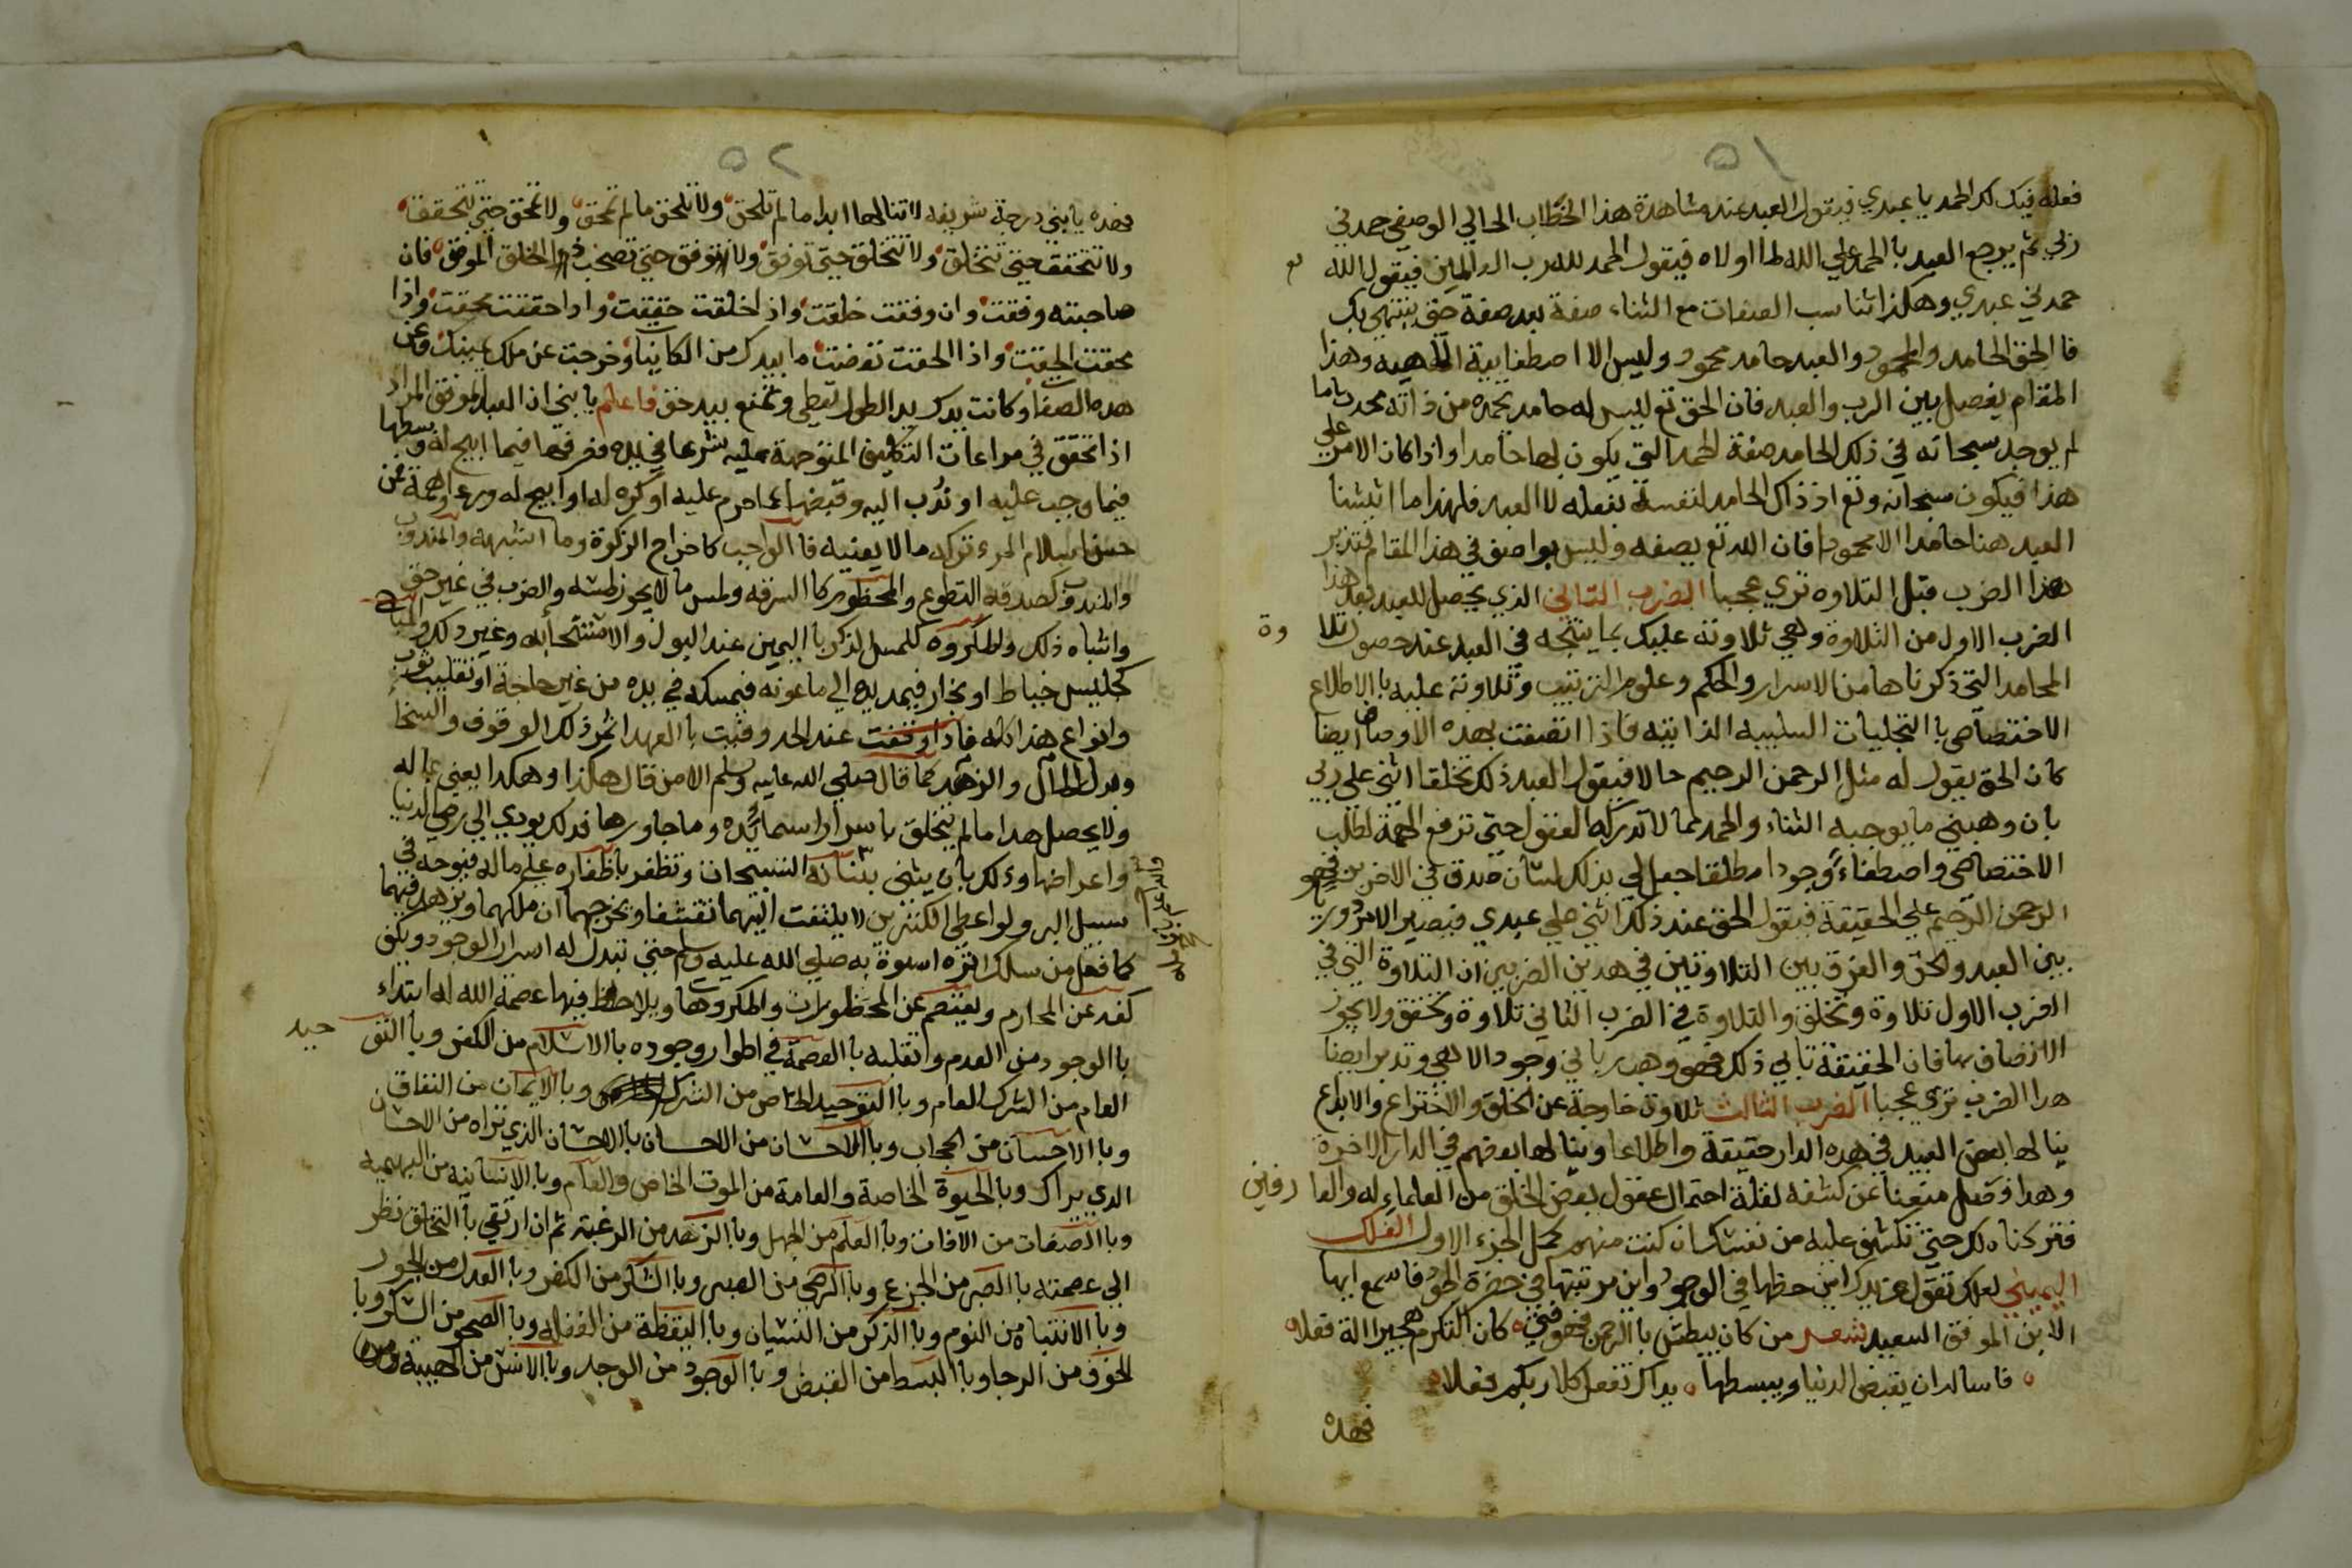 ٥١
فعله فيك لك الحمد يا عبدي فيقول العبد عند مشاهدة هذا الخطاب الحالي الوصفي حمدني
ربي ثم يرجع العبد بالحمد علي الله لما اولاه فيقول الحمد لله رب العالمين فيقول الله
حمدني عبدي وهكذا تناسب الصفات مع الثناء صفة بعد صفة حتى ينتهي بك
فالحق الحامد والمحمود والعبد حامد محمود وليس الا اصطفايية الالهيه وهذا
المقام يفصل بين الرب والعبد فان الحق تع ليس له حامد يحمده من ذاته محدث ما
لم يوجد سبحانه في ذلك الحامد صفة الحمد التي يكون بها حامدا واذا كان الامر علي
هذا فيكون سبحانه وتع اذ ذاك الحامد لنفسه بفعله لا العبد فلهذا ما اثبتنا
العبد هنا حامدا الا محمودا فان الله تع يصفه وليس بواصف في هذا المقام فتدبر
هذا الضرب قبل التلاوه تري عجبا الضرب الثاني الذي يحصل للعبد بعد هذا
الضرب الاول من التلاوة وهي تلاوته عليك بما ينتجه في العبد عند حصول تلاوة
المحامد التي ذكرناها من الاسرار والحكم وعلوم الترتيب وتلاوته عليه بالاطلاع
الاختصاصي بالتجليات السلبيه الذاتيه فاذا اتصفت بهذه الاوصاف ايضا
كان الحق يقول له مثل الرحمن الرحيم حالا فيقول العبد ذلك تخلقا اثني علي ربي
بان وهبني ما يوجبه الثناء والحمد لما لا تدركه العقول حتى ترفع الهمة لطلب
الاختصاص واصطفاء وجودا مطلقا جعل لي بذلك لسان صدق في الاخرين فهو
الرحمن الرحيم علي الحقيقة فيقول الحق عند ذلك اثني علي عبدي فيصير الامر دوريا
بين العبد والحق والفرق بين التلاوتين في هذين الضربين ان التلاوة التي في
الضرب الاول تلاوة وتخلق والتلاوة في الضرب الثاني تلاوة وتحقق ولا يجوز
الاتصاف بها فان الحقيقة تابي ذلك فهو وهب رباني وجود الاهي وتدبر ايضا
هذا الضرب تري عجبا الضرب الثالث تلاوة خارجة عن الخلق والاختراع والابداع
ينالها بعض العبيد في هذه الدار حقيقة واطلاعا وينالها بعضهم في الدار الاخرة
وهذا فصل منعنا عن كشفه لقلة احتمال عقول بعض الخلق من العلماء له والعارفين
فتركناه لك حتى تكشف عليه من نفسك ان كنت منهم كمل الجزء الاول الفلك
اليميني لعلك تقول عن يدك اين حظها في الوجود واين مرتبتها في حضرة الجود فاسمع ايها
الابن الموفق السعيد شعر من كان يبطش بالرحمن فهو فتى ه كان التكرم هجيرا له فعلا ه
ه فاسالدان يقبض الدنيا ويبسطها ه يداك تفعل كلا ربكم فعلا ه
فهذه
٥٢
فهذه يا بني درجة شريفه لا تنالها ابدا ما لم تلحق ولا تلحق ما لم تمحق ولا تمحق حتى تتحقق
ولا تتحقق حتى تتخلق ولا تتخلق حتى توفق ولا توفق حتى تصحب الخلق الموفق فان
صاحبته وفقت وان وفقت خلقت واذ اخلقت حققت واذا حققت محقت واذا
محقت الحقت واذا الحقت تفضت ما بيدك من الكاينات وخرجت عن ملك يمينك وعن
هذه الصفات وكانت يدك يد الطول تعطي وتمنع بيد حق فاعلم يا بني ان العبد الموفق المراد
اذا تحقق في مراعات التكليف المتوجهة عليه شرعا في يده فصرفها فيما ابيح له وبسطها
فيما وجب عليه او ندب اليه وقبضها عما حرم عليه او كره له او ابيح له ورعا وهمة عن
حسن اسلام المرء تركه ما لا يعنيه فالواجب كاخراج الزكوة وما اشبهه والمندوب
والمندوب كصدقة التطوع والمحظور كالسرقه ولمس ما لا يجوز لمسه والضرب في غير حق
واشباه ذلك والمكروه كلمس الذكر باليمين عند البول والاستنجا به وغير ذلك والمباح
كجليس خياط او نجار فيمد يده الي ماعونه فيمسكه في يده من غير حاجة او تقليب ثوب
وانواع هذا كله فاذا وقفت عند الحد وفيت بالعهد اثمر ذلك الوقوف والسخا
وبذل المال والزهد كما قال صلي الله عليه وسلم الا من قال هكذا وهكذا يعني بماله
ولا يحصل هذا ما لم يتخلق باسرار اسمائه وما جاورها فذلك يودي الي رفض الدنيا
واعراضها وذلك بان يثني بثنائه السبحان وتظفر باظفاره علي ماله فيوجه في
سبيل البر ولو اعطي الكنزين لا يلتفت اليهما تقشفا ويخرجهما ان ملكهما ويزهد فيهما
كما فعل من سلك اثره اسوة به صلي الله عليه وسلم حتى تبدل له اسرار الوجود ويكف
كفه عن المحارم ويعتصم عن المحظورات والمكروهات ويلاحظ فيها عصمة الله له ابتداء
بالوجود من العدم وانقلبه بالعصمة في اطوار وجوده بالاسلام من الكفر وبالتوحيد
العام من الشرك العام وبالتوحيد الخاص من الشرك وبالايمان من النفاق
وبالاحسان من الحجاب وبالاحسان من الاحسان بالاحسان الذي تراه من الاحسان
الذي يراك وبالحيوة الخاصة والعامة من الموت الخاص والعام وبالانسانيه من البهيميه
وبالصفات من الافات وبالعلم من الجهل وبالزهد من الرغبة ثم ان ارتقي بالتخلق نظر
الي عصمته بالصبر من الجزع وبالرضي من الصبر وبالشكر من الكفر وبالعدل من الجور
وبالانتباه من النوم وبالذكر من النسيان وباليقظة من الغفله وبالصحو من السكر وبا
لخوف من الرجا وبالبسط من القبض وبالوجود من الوجد وبالانس من الهيبة